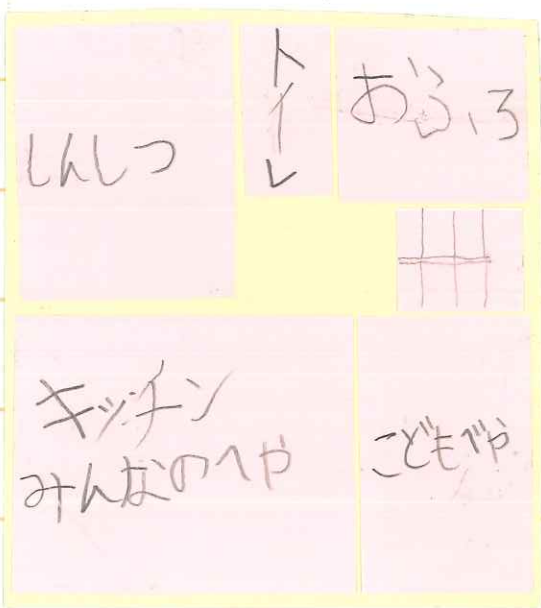 しんしつ
トイレ
おふろ
キッチン
みんなのへや
こどもべや